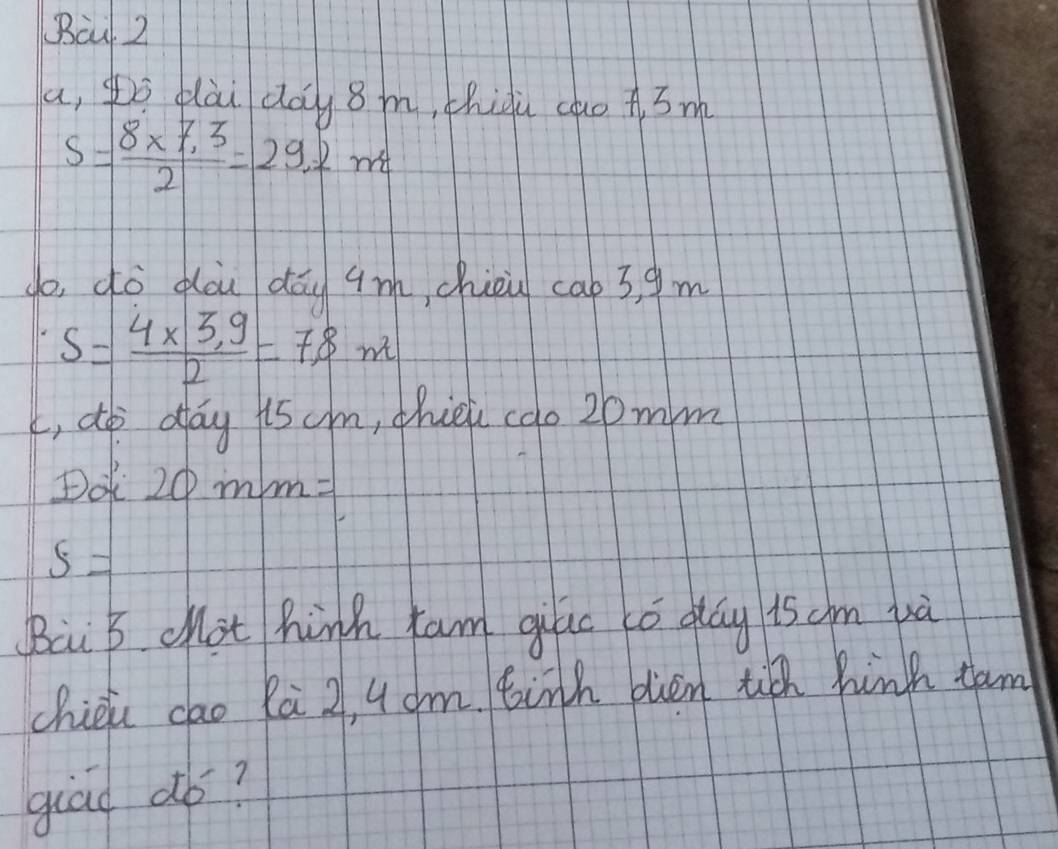 Bài 2
a, Độ dài đáy 8 m, chiều cao 7,3 m
S = 8 x 7,3 / 2 = 29,2 m²
b, độ dài đáy 4m, chiều cao 3,9 m
S = 4 x 3,9 / 2 = 7,8 m²
c, độ đáy 15 cm, chiều cao 20 mm
Đổi 20 mm =
S =
Bài 3. Một hình tam giác có đáy 15 cm và
chiều cao là 2,4 cm. Tính diện tích hình tam
giác đó?